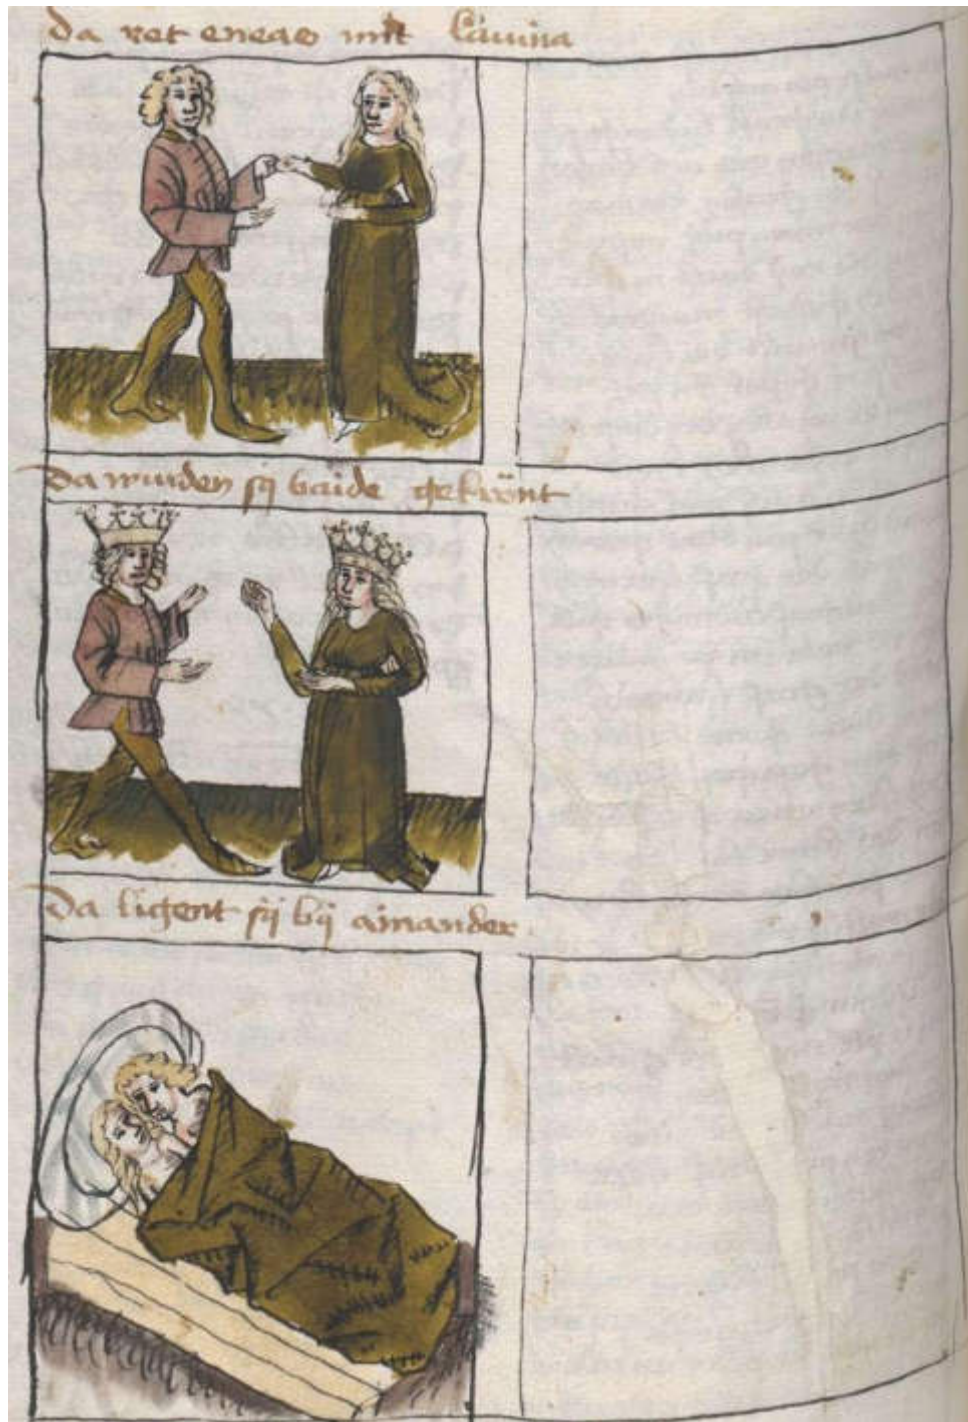 da ret eneas mit lauina
Da wurden sÿ baide gekrönt
Da ligent sÿ bÿ ainander